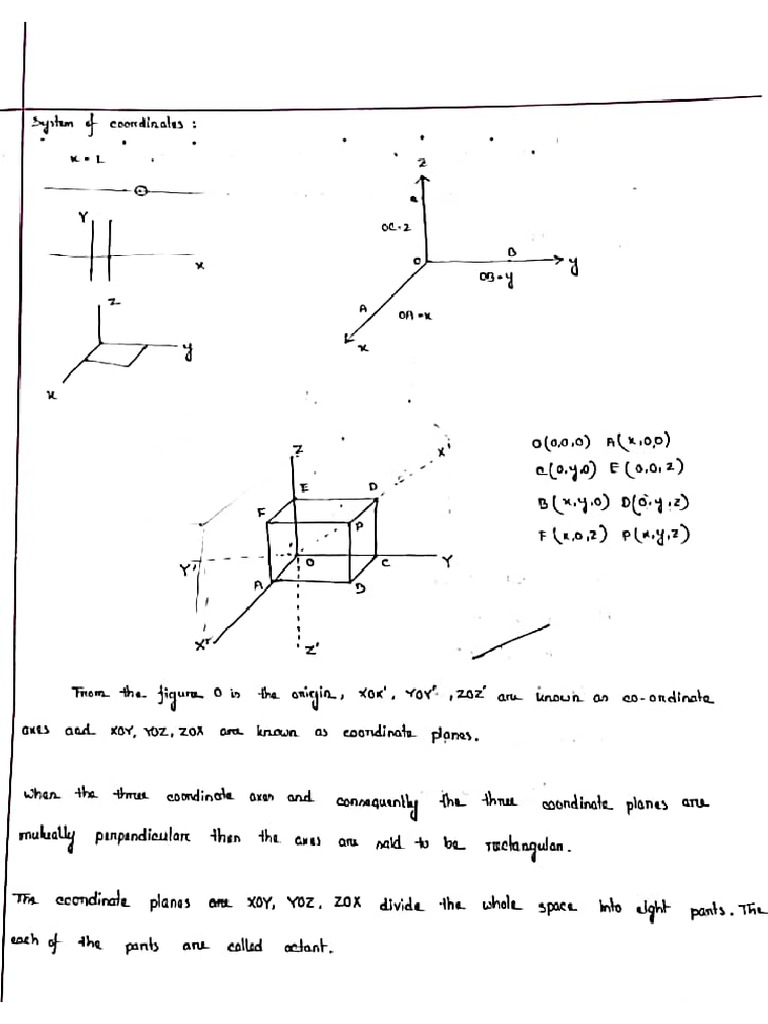 System of coordinates :
x = 1
Y
x
Z
y
x
Z
OC = z
O
B
y
OB = y
A
OA = x
x
Z
X'
E
D
F
P
Y'
O
C
Y
A
B
X
Z'
O(0,0,0) A(x,0,0)
C(0,y,0) E(0,0,z)
B(x,y,0) D(0,y,z)
F(x,0,z) P(x,y,z)
From the figure O is the origin, XOX', YOY', ZOZ' are known as co-ordinate
axes and XOY, YOZ, ZOX are known as coordinate planes.
When the three coordinate axes and consequently the three coordinate planes are
mutually perpendicular then the axes are said to be rectangular.
The coordinate planes are XOY, YOZ, ZOX divide the whole space into eight parts. The
each of the parts are called octant.